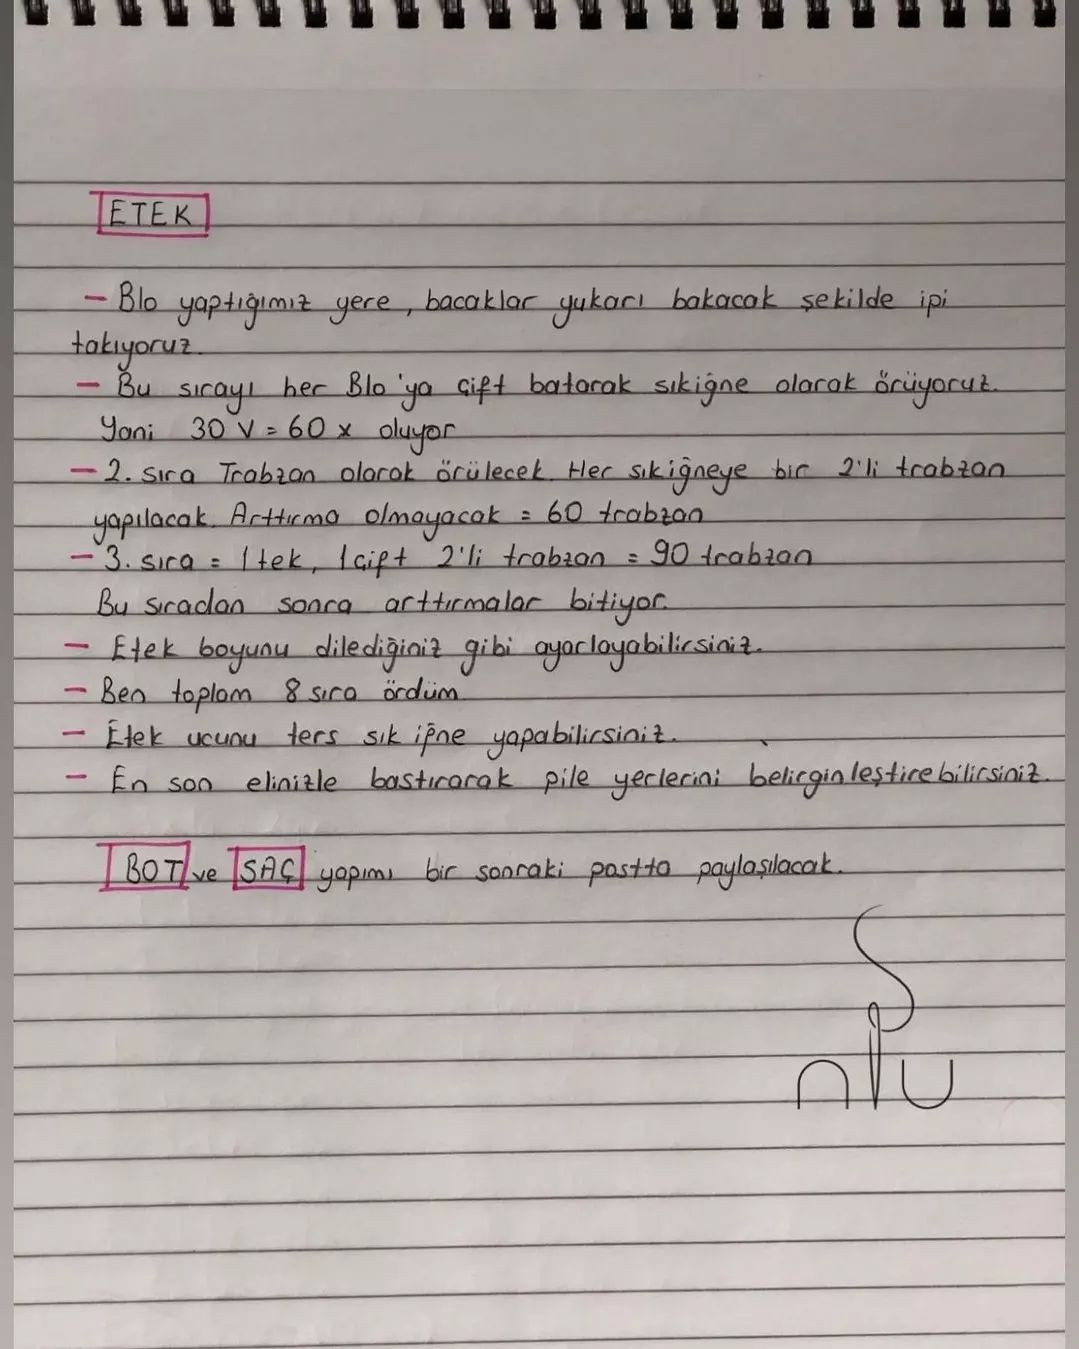 ETEK
- Blo yaptığımız yere, bacaklar yukarı bakacak şekilde ipi
takıyoruz.
- Bu sırayı her Blo'ya çift batarak sıkiğne olarak örüyoruz.
Yani 30 V = 60 x oluyor
- 2. sıra Trabzan olarak örülecek. Her sıkiğneye bir 2'li trabzan
yapılacak. Arttırma olmayacak = 60 trabzan
- 3. sıra = 1 tek, 1 çift 2'li trabzan = 90 trabzan
Bu sıradan sonra arttırmalar bitiyor.
- Etek boyunu dilediğiniz gibi ayarlayabilirsiniz.
- Ben toplam 8 sıra ördüm
- Etek ucunu ters sık iğne yapabilirsiniz.
- En son elinizle bastırarak pile yerlerini belirginleştirebilirsiniz.
BOT ve SAÇ yapımı bir sonraki postta paylaşılacak.
nlu